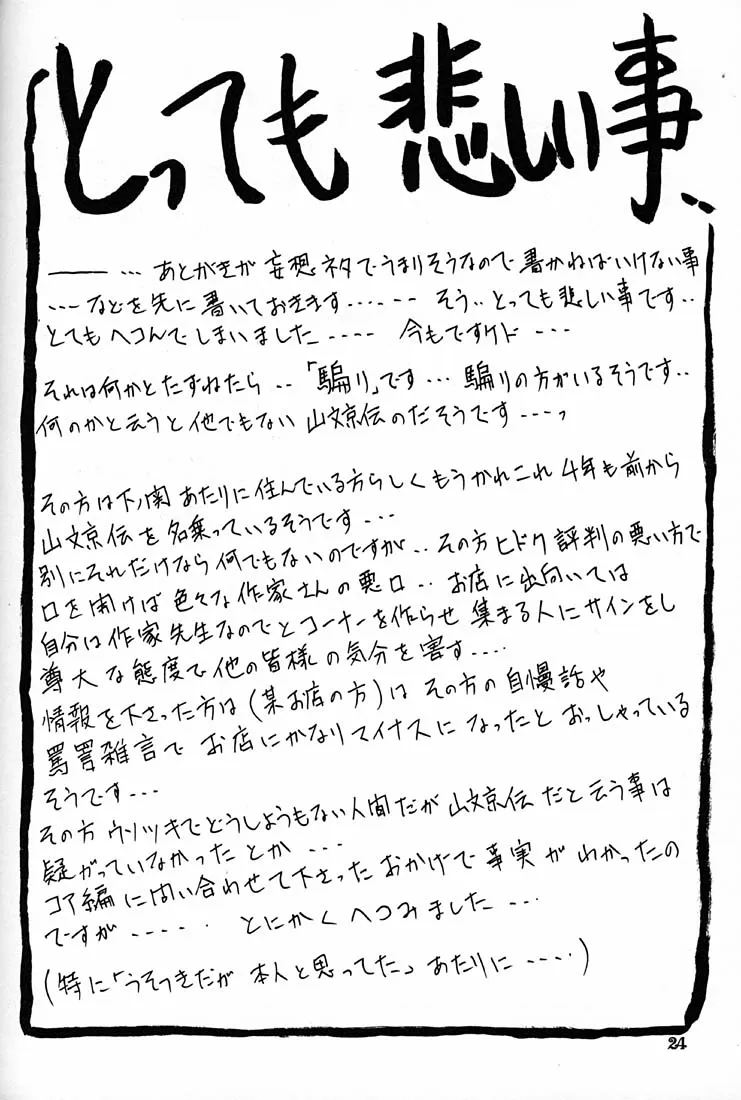 とっても悲しい事‥
――― … あとがきが 妄想ネタでうまりそうなので 書かねばいけない事
‥‥ などを先に書いておきます‥‥‥ そう‥ とっても悲しい事です‥
とてもヘコんでしまいました ‥‥‥ 今もですケド ‥‥
それは何かとたずねたら ‥「騙り」です… 騙りの方がいるそうです‥
何のかと云うと他でもない 山文京伝のだそうです‥‥っ
その方は下ノ関あたりに住んでいる方らしくもうかれこれ 4年も前から
山文京伝を名乗っているそうです‥‥
別にそれだけなら何でもないのですが‥ その方ヒドク評判の悪い方で
口を開けば 色々な作家さんの悪口‥ お店に出向いては
自分は作家先生なのでとコーナーを作らせ 集まる人にサインをし
尊大な態度で他の皆様の気分を害す‥‥
情報を下さった方は(某お店の方)は その方の自慢話や
罵詈雑言で お店にかなりマイナスになったと おっしゃっている
そうです‥‥
その方 ウソツキでどうしようもない人間だが 山文京伝だと云う事は
疑がっていなかったとか ‥‥
コア編に問い合わせて下さった おかげで 事実が わかったの
ですが‥‥‥ とにかくへコみました ‥‥
(特に「うそつきだが 本人と思ってた」あたりに ‥‥‥)
24